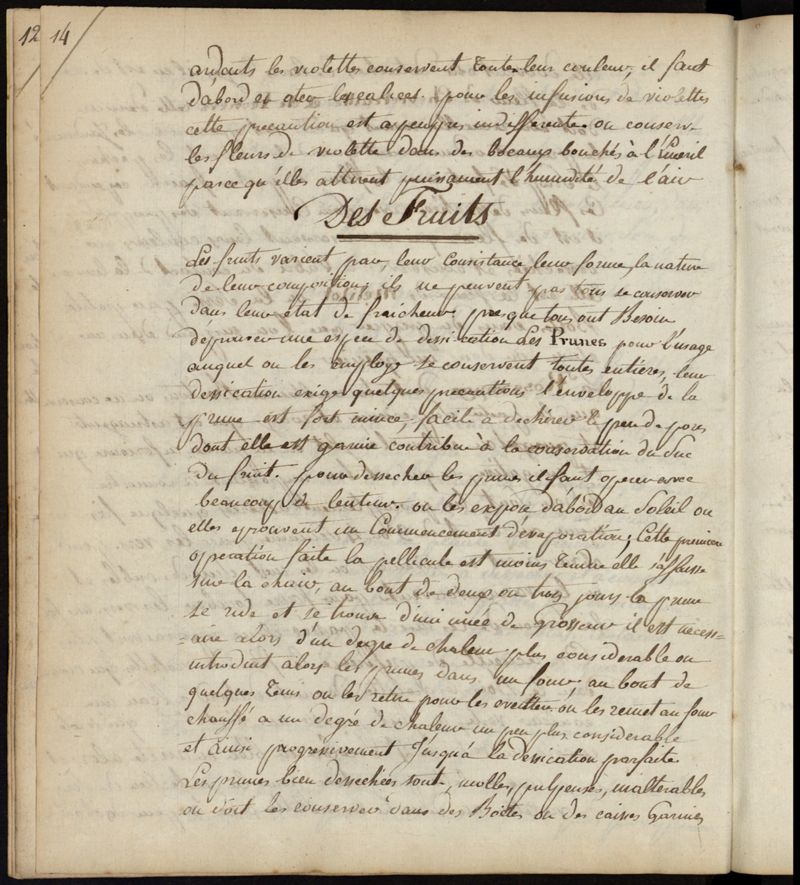 12 14
ardents les violettes conservent toute leur couleur, il faut
dabord en oter les calices. pour les infusions de violettes
cette precaution est a peu pres indifferente. on conserv
les fleurs de violette dans des bocaux bouchés à l'Emeril
parce qu'elles attirent puissament l'humidité de l'air
Des Fruits
Les fruits varient par leur Consistance, leur forme, la nature
de leur composition, ils ne peuvent pas tous se conserver
dans leur état de fraicheur presque tous ont Besoin
d'eprouver une espece de dessication Les Prunes pour l'usage
auquel on les employe se conservent toutes entières, leur
dessication exige quelques precautions l'enveloppe de la
prune est fort mince, facile a dechirer le peu de
dont elle est garnie contribue à la conservation du Suc
du fruit. pour dessecher les prunes il faut operer avec
beaucoup de lenteur. on les expose d'abord au Soleil ou
elles eprouvent un Commencement d'evaporation; Cette premiere
operation faite la pellicule est moins tendue elle saffaisse
sur la chair, au bout de deux ou trois jours la prune
se ride et se trouve diminuée de grosseur il est necess=
=aire alors d'un degre de chaleur plus considerable on
introduit alors les prunes dans un four au bout de
quelques tems on les retire pour les on les remet au four
chauffé a un degré de chaleur un peu plus considerable
et ainsi progressivement Jusqu'à la dessication parfaite.
Les prunes bien dessechées sont molles, pulpeuses, inalterables
on doit les conserver dans des Boëtes ou des caisses Garnies